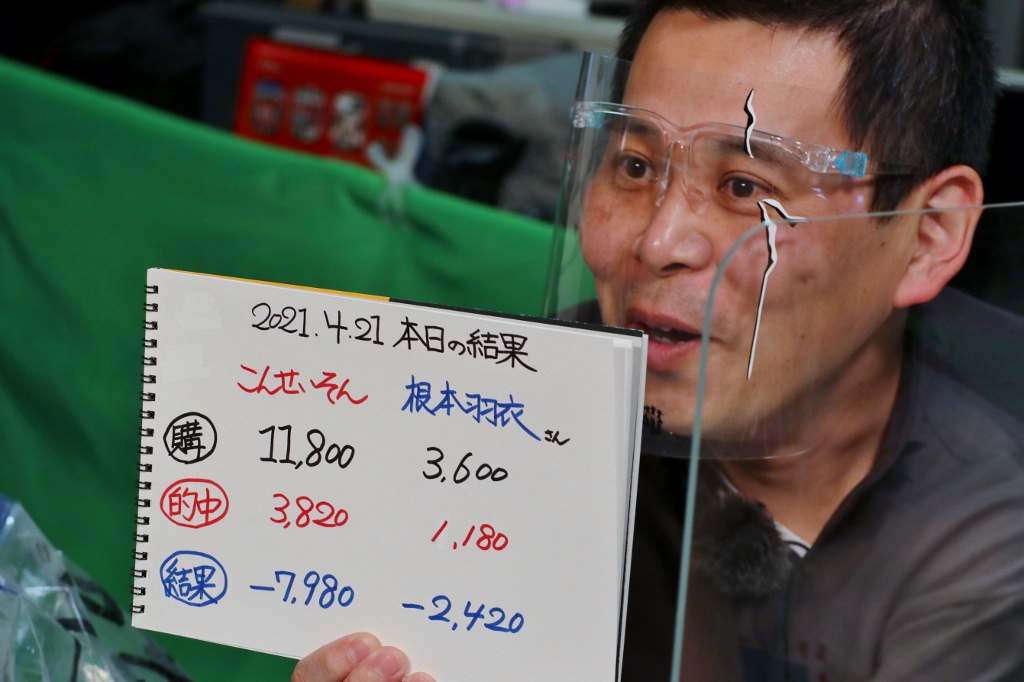 2021.4.21 本日の結果
こんせいそん 根本羽衣さん
購 11,800 3,600
的中 3,820 1,180
結果 -7,980 -2,420